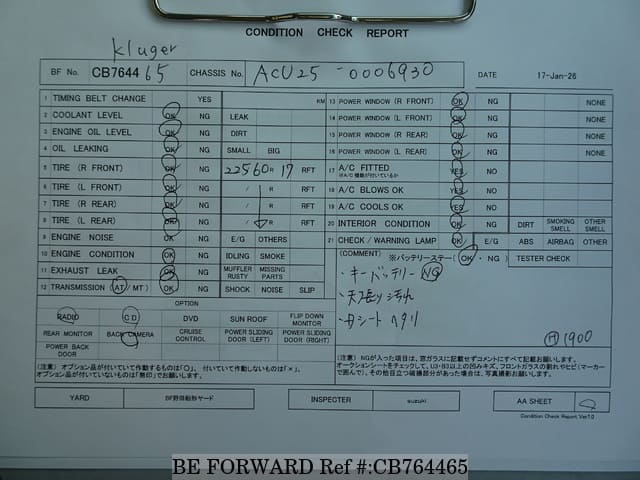 CONDITION CHECK REPORT
Kluger
BF No. CB7644 65 CHASSIS No. ACU25 -0006930 DATE 17-Jan-26
1 TIMING BELT CHANGE YES KM
2 COOLANT LEVEL OK NG LEAK
3 ENGINE OIL LEVEL OK NG DIRT
4 OIL LEAKING OK NG SMALL BIG
5 TIRE (R FRONT) OK NG 225 60 R 17 RFT
6 TIRE (L FRONT) OK NG / R RFT
7 TIRE (R REAR) OK NG / R RFT
8 TIRE (L REAR) OK NG / R RFT
9 ENGINE NOISE OK NG E/G OTHERS
10 ENGINE CONDITION OK NG IDLING SMOKE
11 EXHAUST LEAK OK NG MUFFLER RUSTY MISSING PARTS
12 TRANSMISSION (AT/ MT) OK NG SHOCK NOISE SLIP
OPTION
RADIO CD DVD SUN ROOF FLIP DOWN MONITOR
REAR MONITOR BACK CAMERA CRUISE CONTROL POWER SLIDING DOOR (LEFT) POWER SLIDING DOOR (RIGHT)
POWER BACK DOOR
(注意) オプション品が付いていて作動するものは「○」、付いていて作動しないものは「×」、
オプション品が付いていないものは「無印」でお願いします。
13 POWER WINDOW (R FRONT) OK NG NONE
14 POWER WINDOW (L FRONT) OK NG NONE
15 POWER WINDOW (R REAR) OK NG NONE
16 POWER WINDOW (L REAR) OK NG NONE
17 A/C FITTED YES NO
※A/C機能が付いているか
18 A/C BLOWS OK YES NO
19 A/C COOLS OK YES NO
20 INTERIOR CONDITION OK NG DIRT SMOKING SMELL OTHER SMELL
21 CHECK / WARNING LAMP OK E/G ABS AIRBAG OTHER
(COMMENT) ※バッテリーステー( OK ・ NG ) TESTER CHECK
・キーバッテリー NG
・天張り汚れ
・シート ヘタリ
H 1900
(注意) NGが入った項目は、窓ガラスに記載せずコメントにすべて記載お願いします。
オークションシートをチェックし、U3・B3以上の凹みキズ、フロントガラスの割れやヒビ(マーカー
で囲んで)、その他目立つ破損部分があった場合は、写真撮影お願いします。
YARD BF野田船形ヤード INSPECTER suzuki AA SHEET
Condition Check Report Ver7.0
BE FORWARD Ref #:CB764465